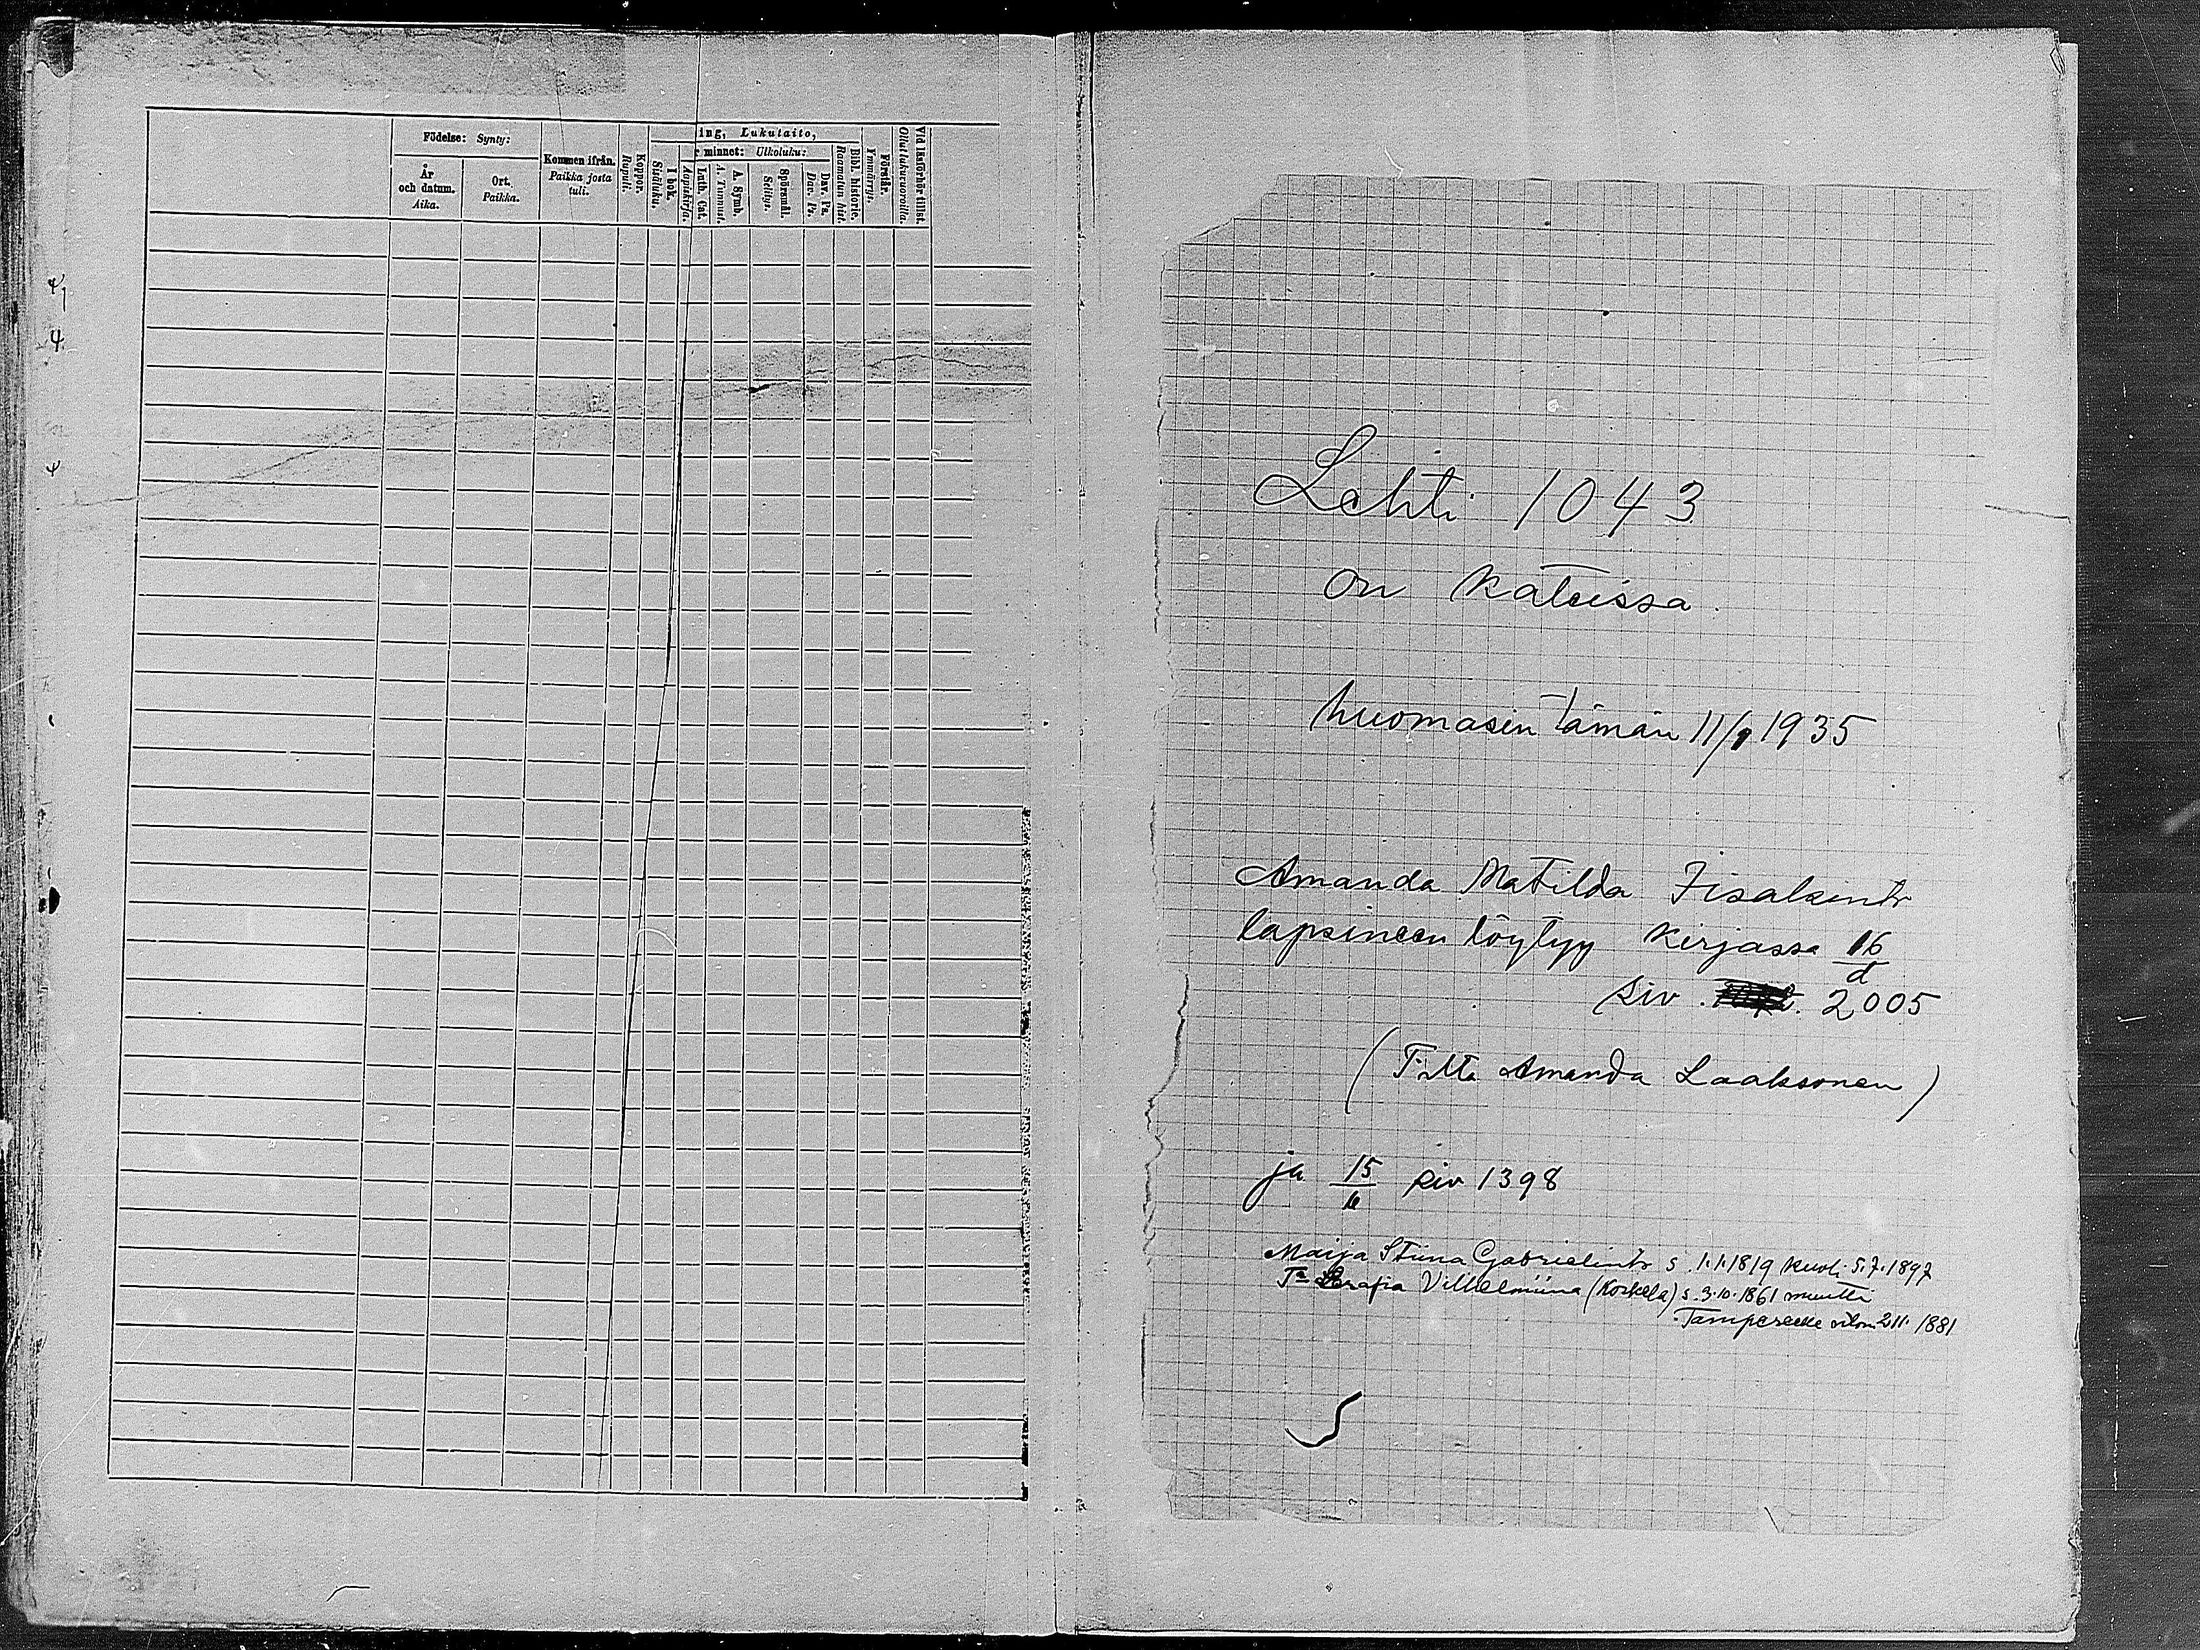 Födelse: Synty:
År och datum. Aika.
Ort. Paikka.
Kommen ifrån. Paikka josta tuli.
Koppor. Rupuli.
ing, Lukutaito,
I bok. Sisäluku.
r minnet: Ulkoluku:
Aapiskirja. Luth. Cat.
A. Tunnust. A. Symb.
Spörsmål. Selitys.
Dav. Ps. Dav. Ps.
Bibl. historie. Raamatun hist.
Förstår. Ymmärrys.
Vid läsförhör tillst. Ollut lukuvuoroilla.
Lehti 1043
on kateissa.
huomasin tämän 11/9 1935
Amanda Matilda Iisakintr
lapsineen löytyy kirjassa 16/d
siv. 2005
(Tilta Amanda Laaksonen)
ja 15/6 siv 1398
Maija Stiina Gabrielintr s. 1.1.1819 kuoli 5.7.1897
Serafia Vilhelmiina (Koskela) s. 3.10.1861 muutti
Tampereelle 2.11. 1881